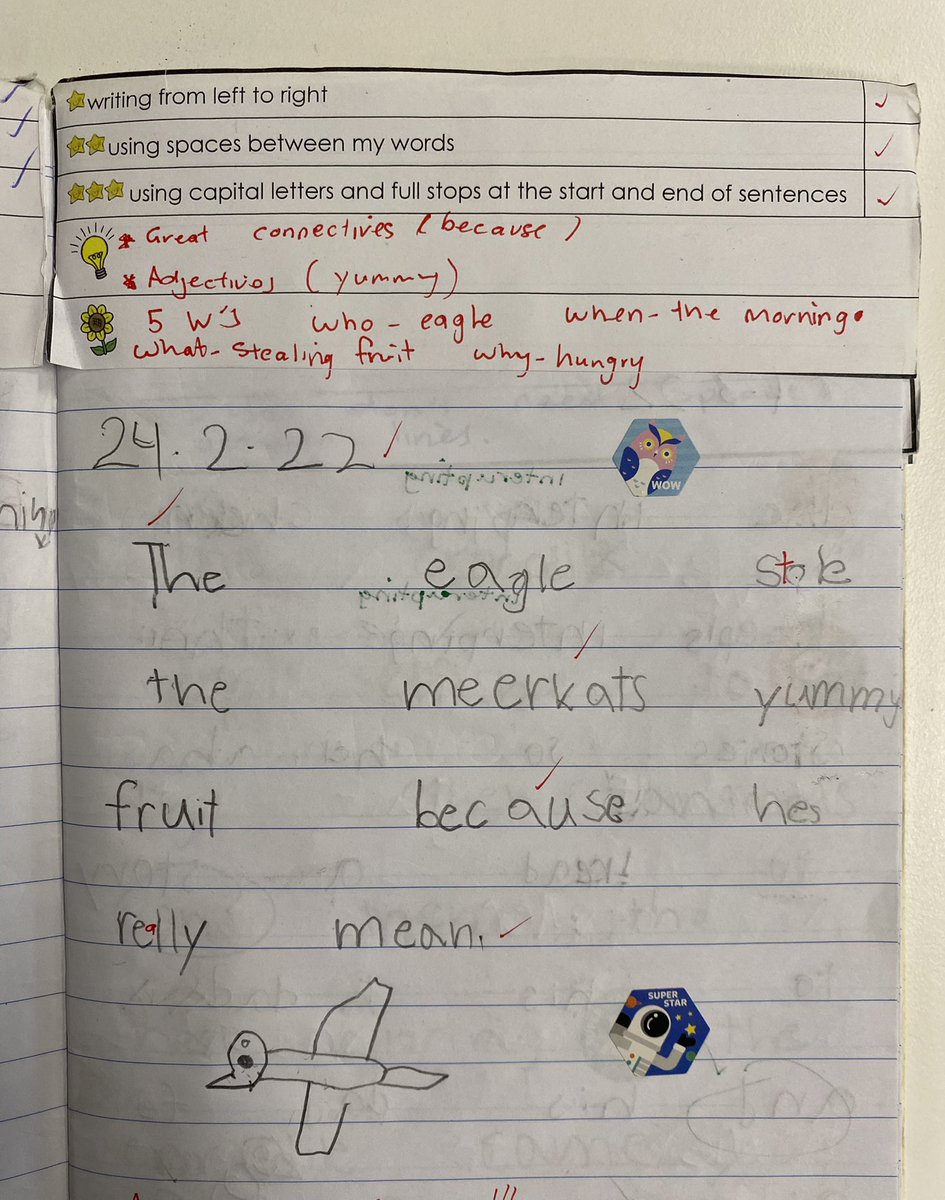 writing from left to right
using spaces between my words
using capital letters and full stops at the start and end of sentences
* Great connectives (because)
* Adjectives (yummy)
5 W's who - eagle when - the morning.
what - stealing fruit why - hungry
24.2.22
WOW
interrupting
The eagle stole
interrupting
the meerkats yummy
fruit because hes
really mean.
SUPER STAR